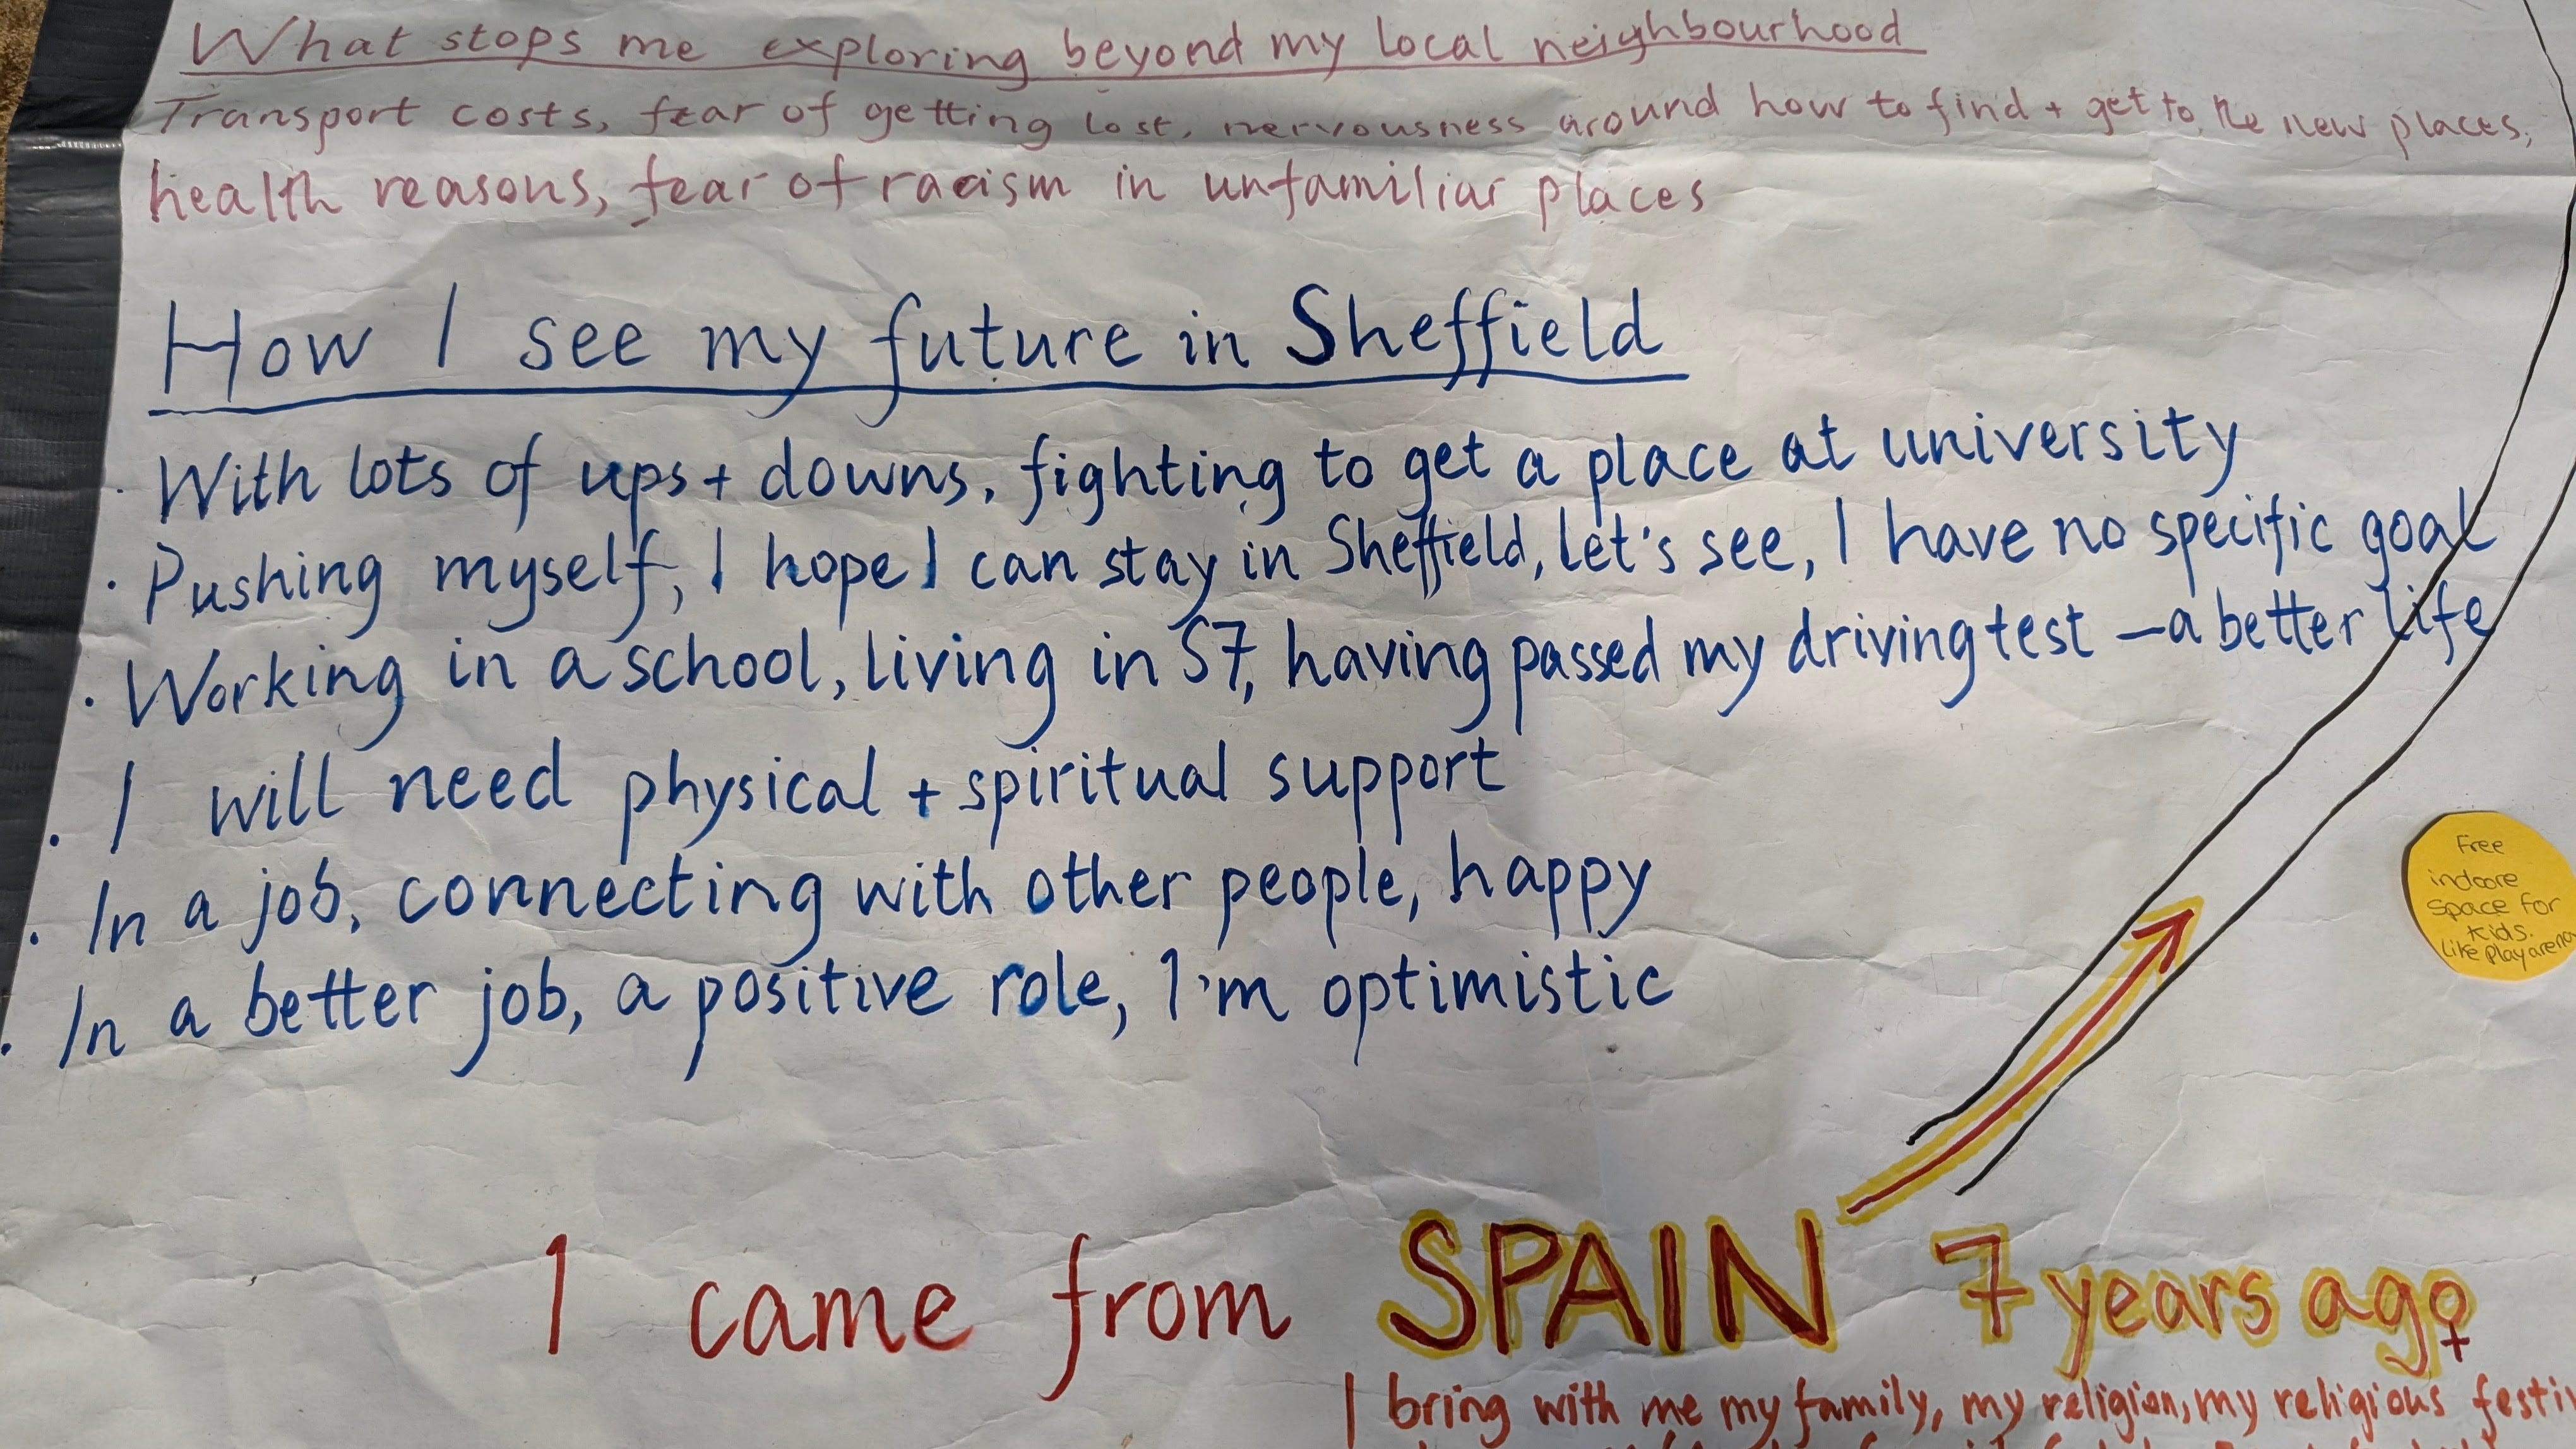 What stops me exploring beyond my local neighbourhood
Transport costs, fear of getting lost, nervousness around how to find + get to the new places,
health reasons, fear of racism in unfamiliar places
How I see my future in Sheffield
· With lots of ups + downs, fighting to get a place at university
· Pushing myself, I hope I can stay in Sheffield, let's see, I have no specific goal
· Working in a school, living in S7, having passed my driving test – a better life
· I will need physical + spiritual support
· In a job, connecting with other people, happy
· In a better job, a positive role, I'm optimistic
Free
indoore
space for
kids.
like play arena
I came from SPAIN 7 years ago
I bring with me my family, my religion, my religious festi